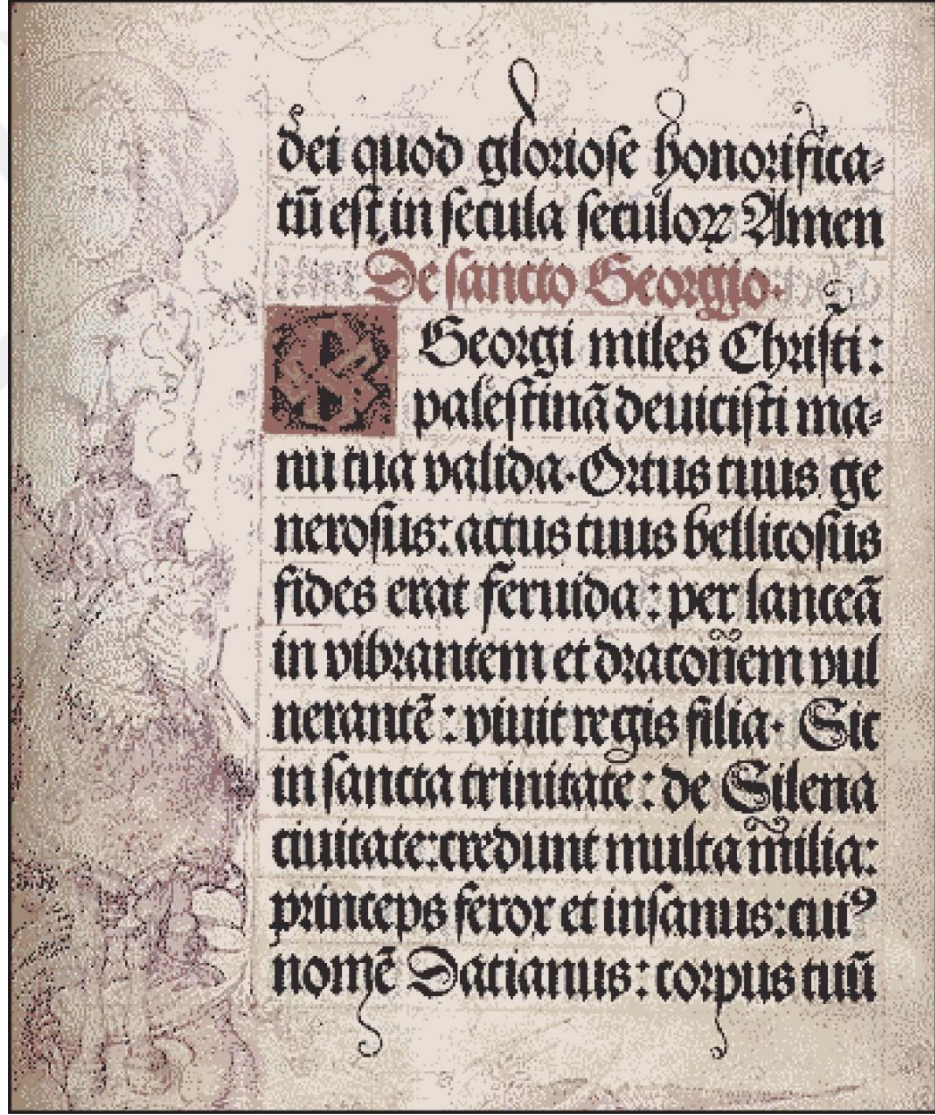 dei quod gloriose honorifica⸗
tū est, in secula seculoꝝ Amen
De sancto Georgio.
Georgi miles Christi:
palestinā deuicisti ma⸗
nu tua valida. Ortus tuus ge
nerosus: actus tuus bellicosus
fides erat feruida: per lanceā
in vibrantem et draconem vul
nerantē: viuit regis filia. Sic
in sancta trinitate: de Silena
ciuitate: credunt multa milia:
princeps ferox et insanus: cuiꝰ
nomē Dacianus: corpus tuū